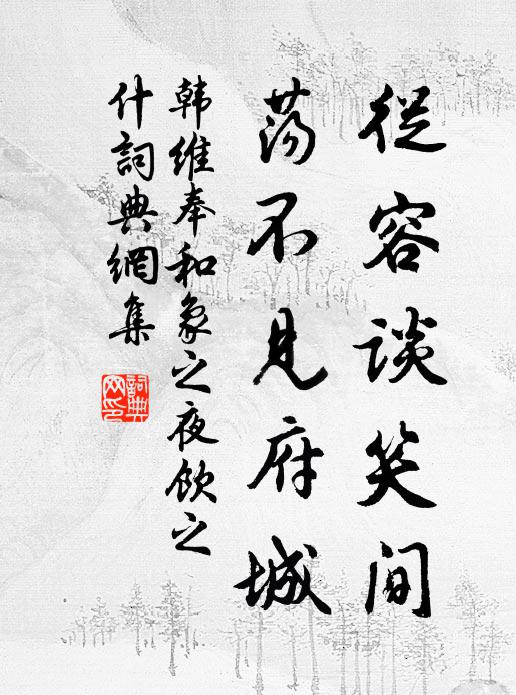 從容談笑間
蕩不見府城
韩維奉和象之夜飲之
什詞典網集
詞典
網印